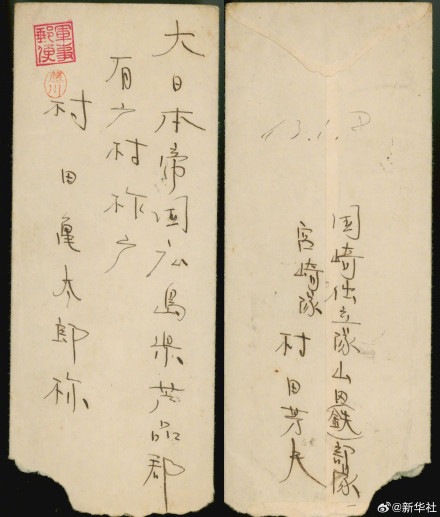 軍事
郵便
大日本帝国広島県芦品郡
有广村柞广
村田亀太郎様
国崎独立隊山田(鉄)部隊
宮崎隊
村田芳夫
@新华社